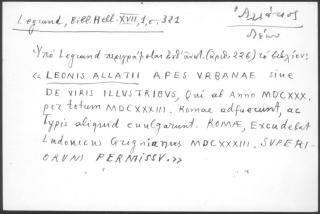 Legrand, Bibl. Hell. XVII, 1, σ. 321
Ἀλλάτιος
Λέων
Ὑπὸ Legrand περιγράφεται (ἀριθ. 226) τὸ βιβλίον:
« LEONIS ALLATII APES VRBANAE siue
DE VIRIS ILLVSTRIBVS, Qui ab Anno MDCXXX.
per totum MDCXXXII. Romae adfuerunt, ac
Typis aliquid euulgarunt. ROMÆ, Excudebat
Ludouicus Grignianus MDCXXXIII. SVPERI-
ORVM PERMISSV. »